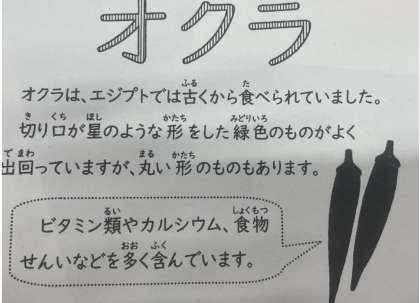 オクラ
オクラは、エジプトでは古くから食べられていました。
切り口が星のような形をした緑色のものがよく
出回っていますが、丸い形のものもあります。
ビタミン類やカルシウム、食物
せんいなどを多く含んでいます。